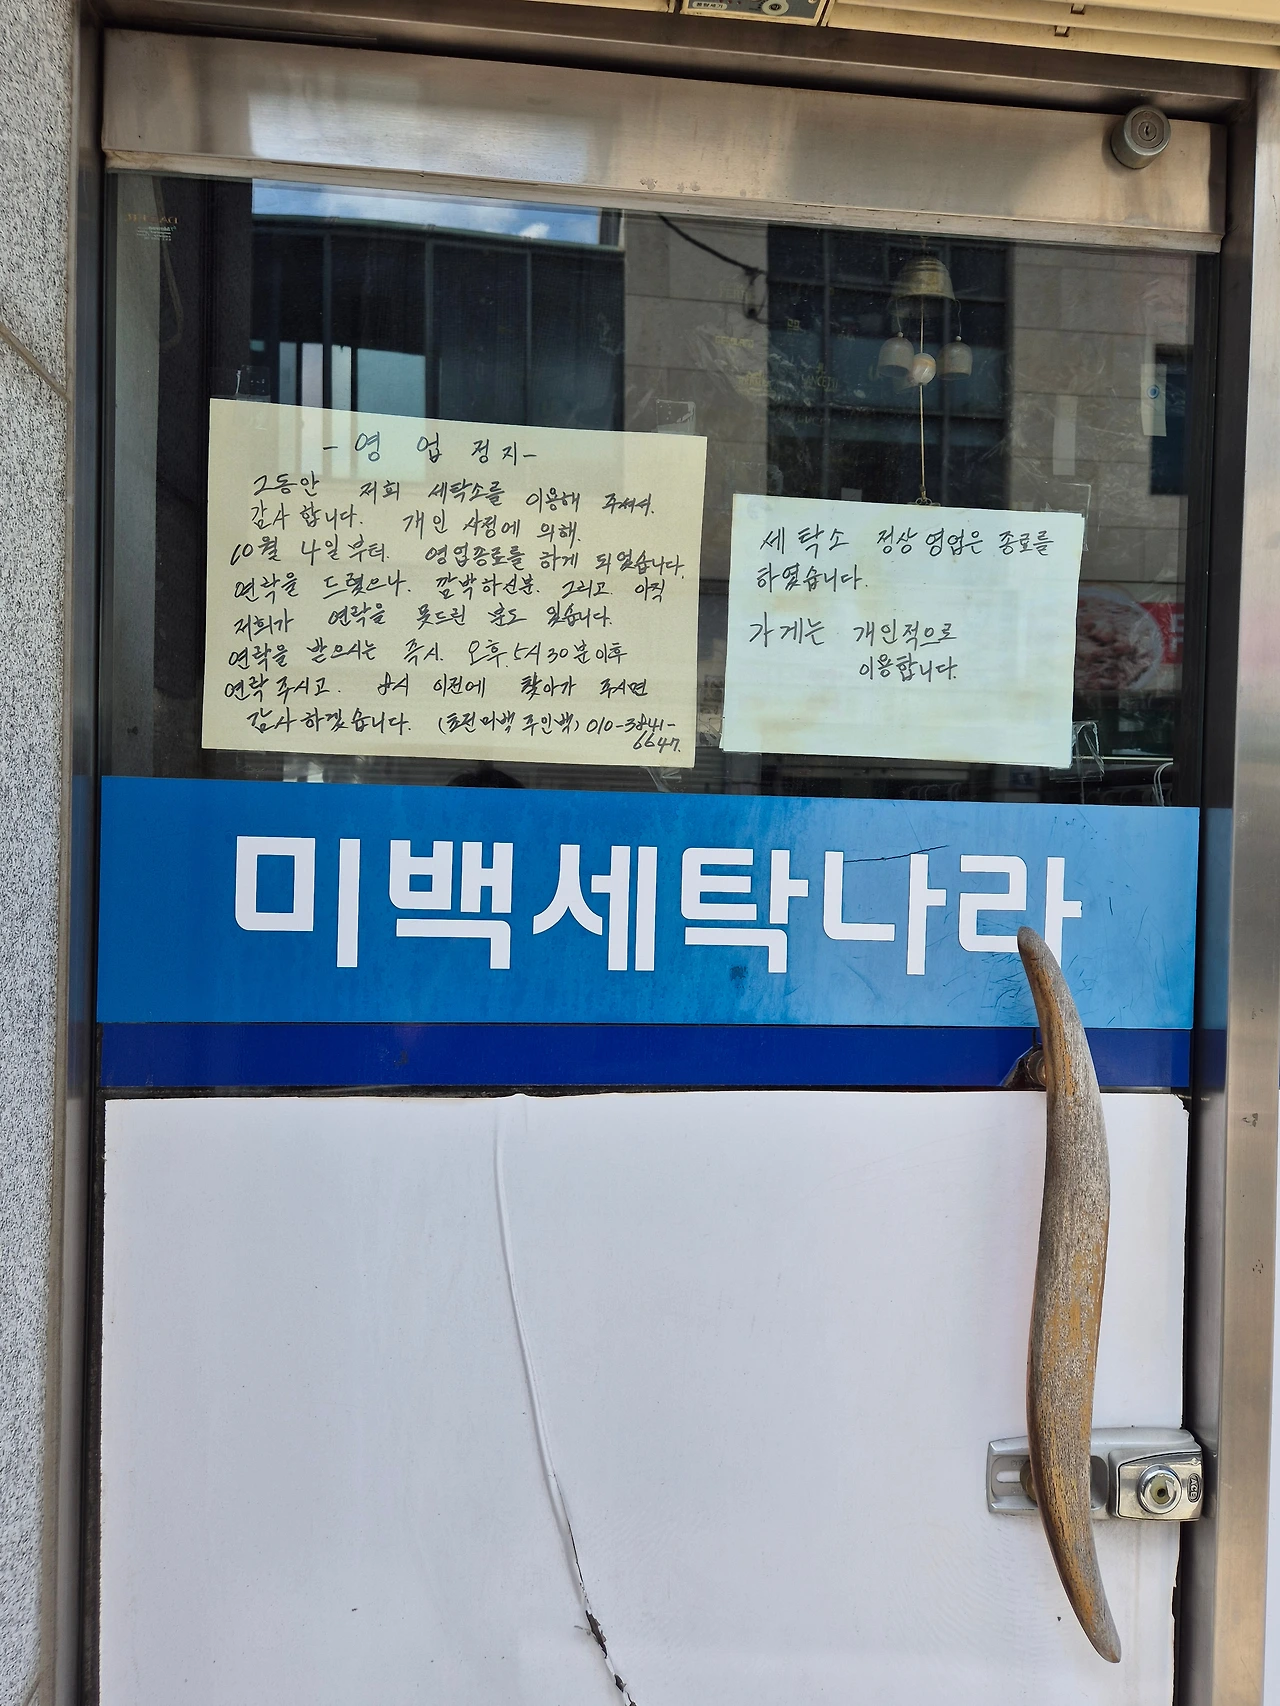 - 영 업 정 지 -
그동안 저희 세탁소를 이용해 주셔서.
감사합니다. 개인 사정에 의해.
10월 4일부터. 영업종료를 하게 되었습니다.
연락을 드렸으나. 깜박하신분. 그리고. 아직
저희가 연락을 못드린 분도 있습니다.
연락을 받으시는 즉시. 오후.5시30분이후
연락주시고. 8시 이전에 찾아가 주시면
감사하겠습니다. (초전미백 주인백) 010-3841-
6647.
세탁소 정상영업은 종료를
하였습니다.
가게는 개인적으로
이용합니다.
미백세탁나라
ACE